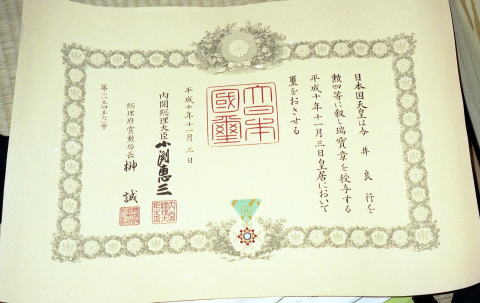 日本国天皇は今井良行を
勲四等に叙し瑞寶章を授与する
平成十年十一月三日皇居において
璽をおさせる
大日本國璽
平成十年十一月三日
内閣総理大臣 小渕恵三
総理府賞勲局長 榊誠